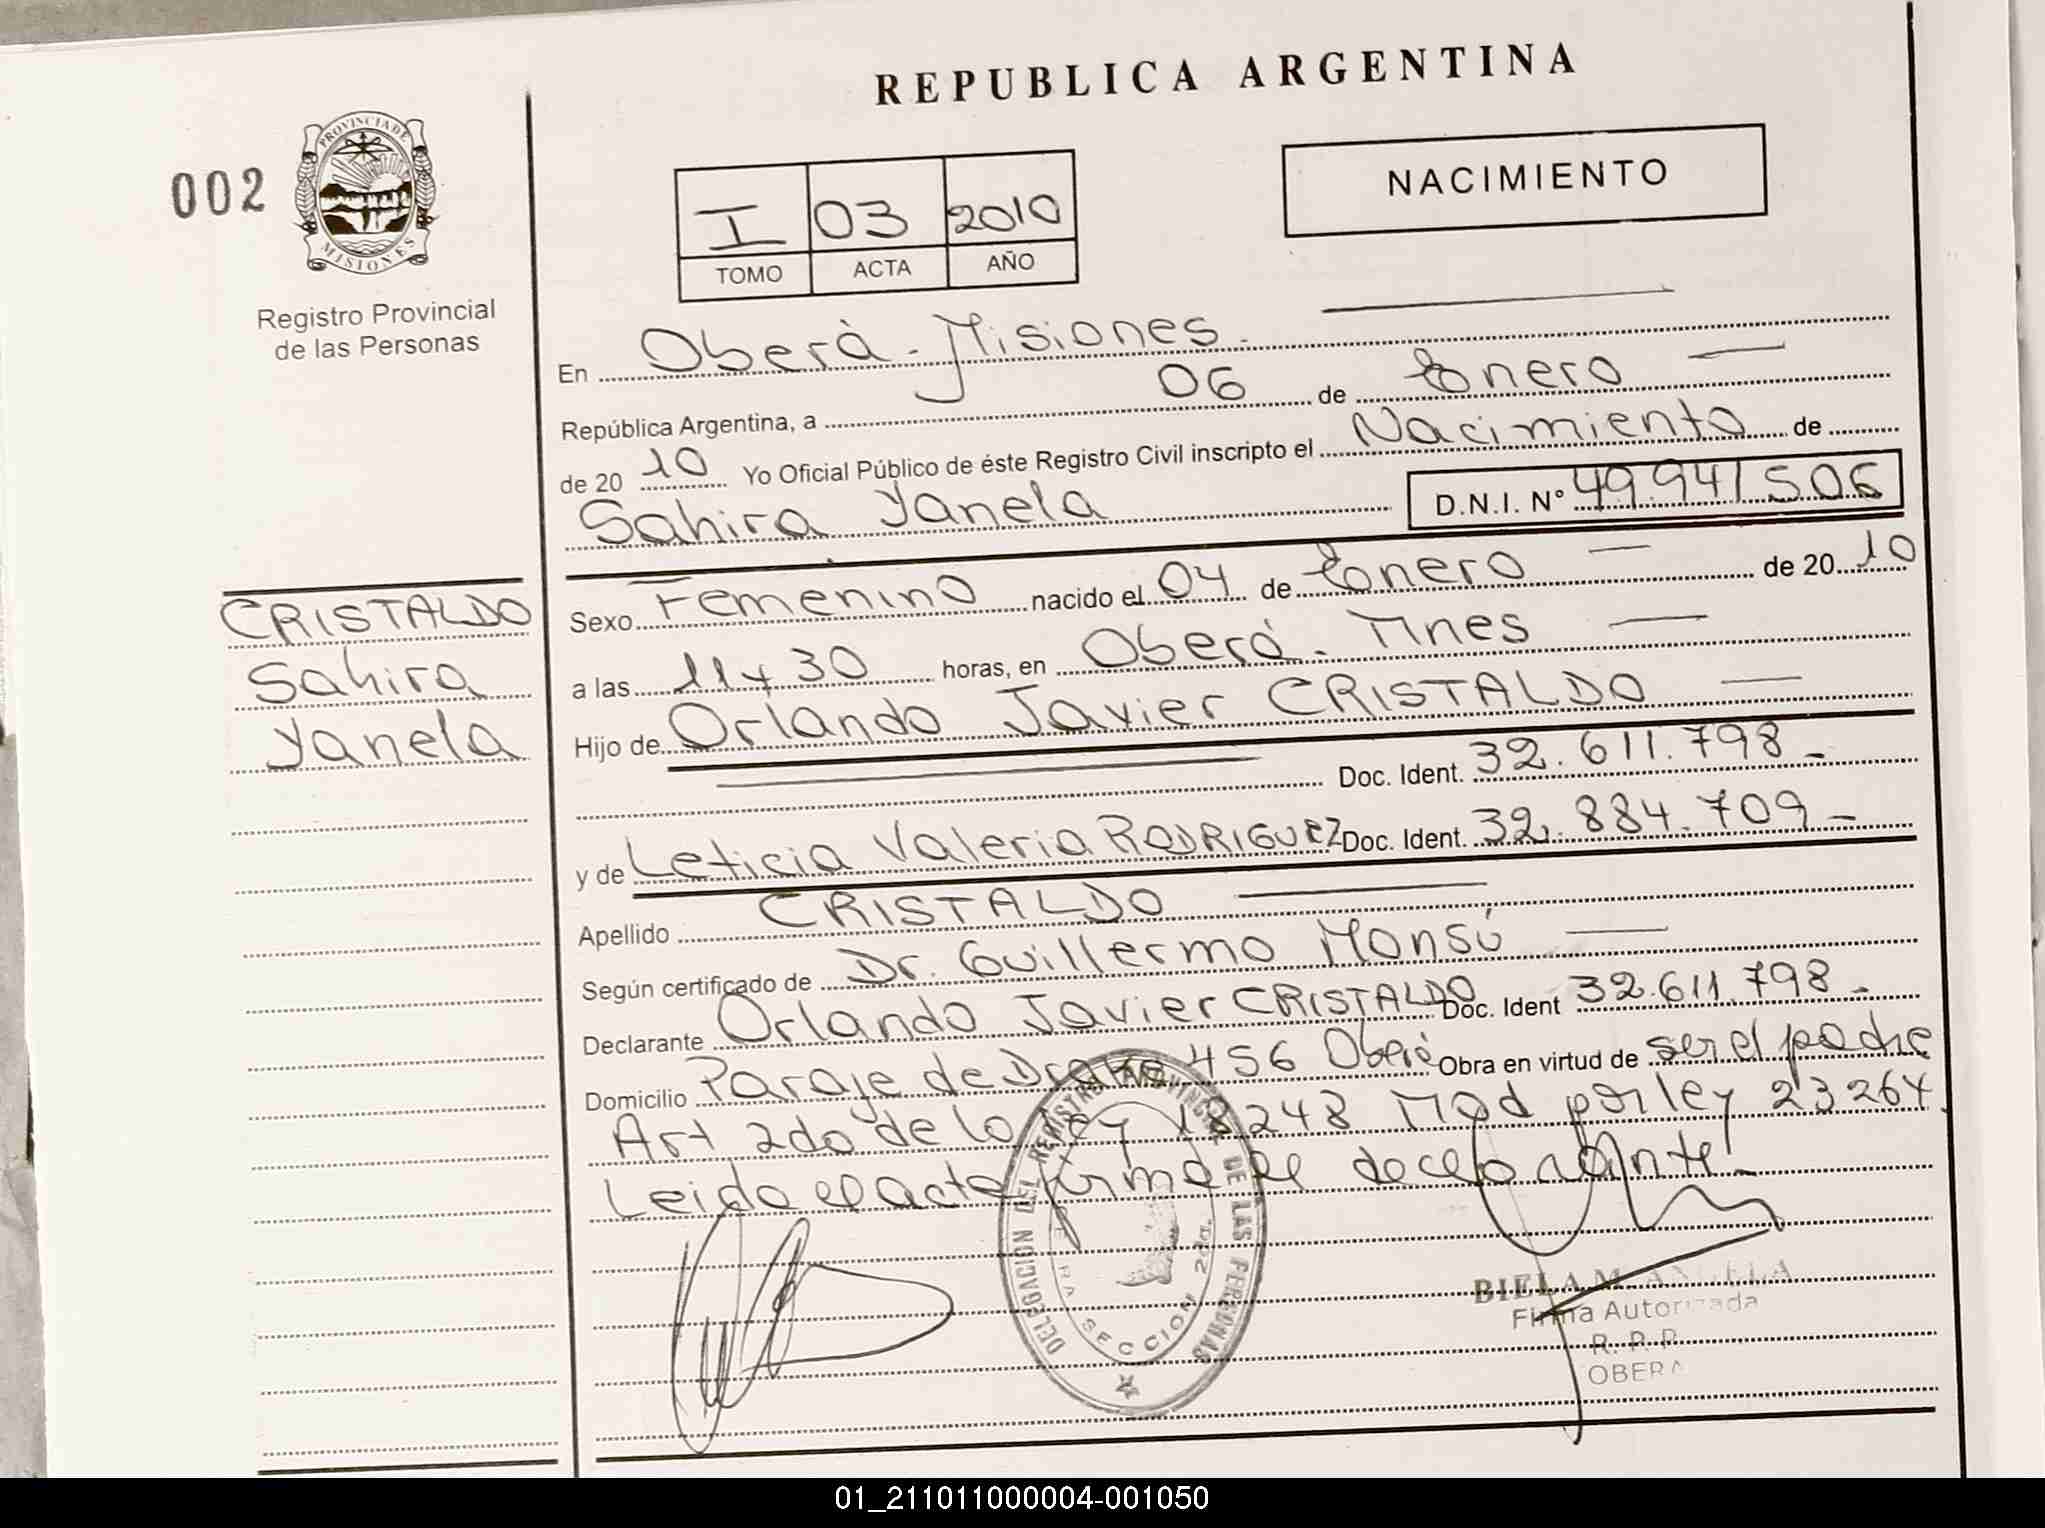 REPUBLICA ARGENTINA
002
PROVINCIA DE
MISIONES
Registro Provincial
de las Personas
NACIMIENTO
I 03 2010
TOMO ACTA AÑO
En Oberá - Misiones.
República Argentina, a 06 de Enero
de 20 10 Yo Oficial Público de éste Registro Civil inscripto el Nacimiento de
Sahira Yanela D.N.I. Nº 49.941506
CRISTALDO
Sahira
Yanela
Sexo Femenino nacido el 04 de Enero de 20 10
a las 11 y 30 horas, en Oberá - Mnes
Hijo de Orlando Javier CRISTALDO
Doc. Ident. 32.611.798 -
y de Leticia Valeria RODRIGUEZ Doc. Ident. 32.884.709 -
Apellido CRISTALDO
Según certificado de Dr. Guillermo Monsú
Declarante Orlando Javier CRISTALDO Doc. Ident 32.611.798 -
Domicilio Paraje de 456 Oberá Obra en virtud de ser el padre
Art 2do de la ley 18248 Mod por ley 23264.
Leida el acta firma el declarante -
DELEGACION DEL REGISTRO PROVINCIAL DE LAS PERSONAS
SECCION 2da.
BIELA M. ANGELA
Firma Autorizada
R. P. P.
OBERA
01_211011000004-001050